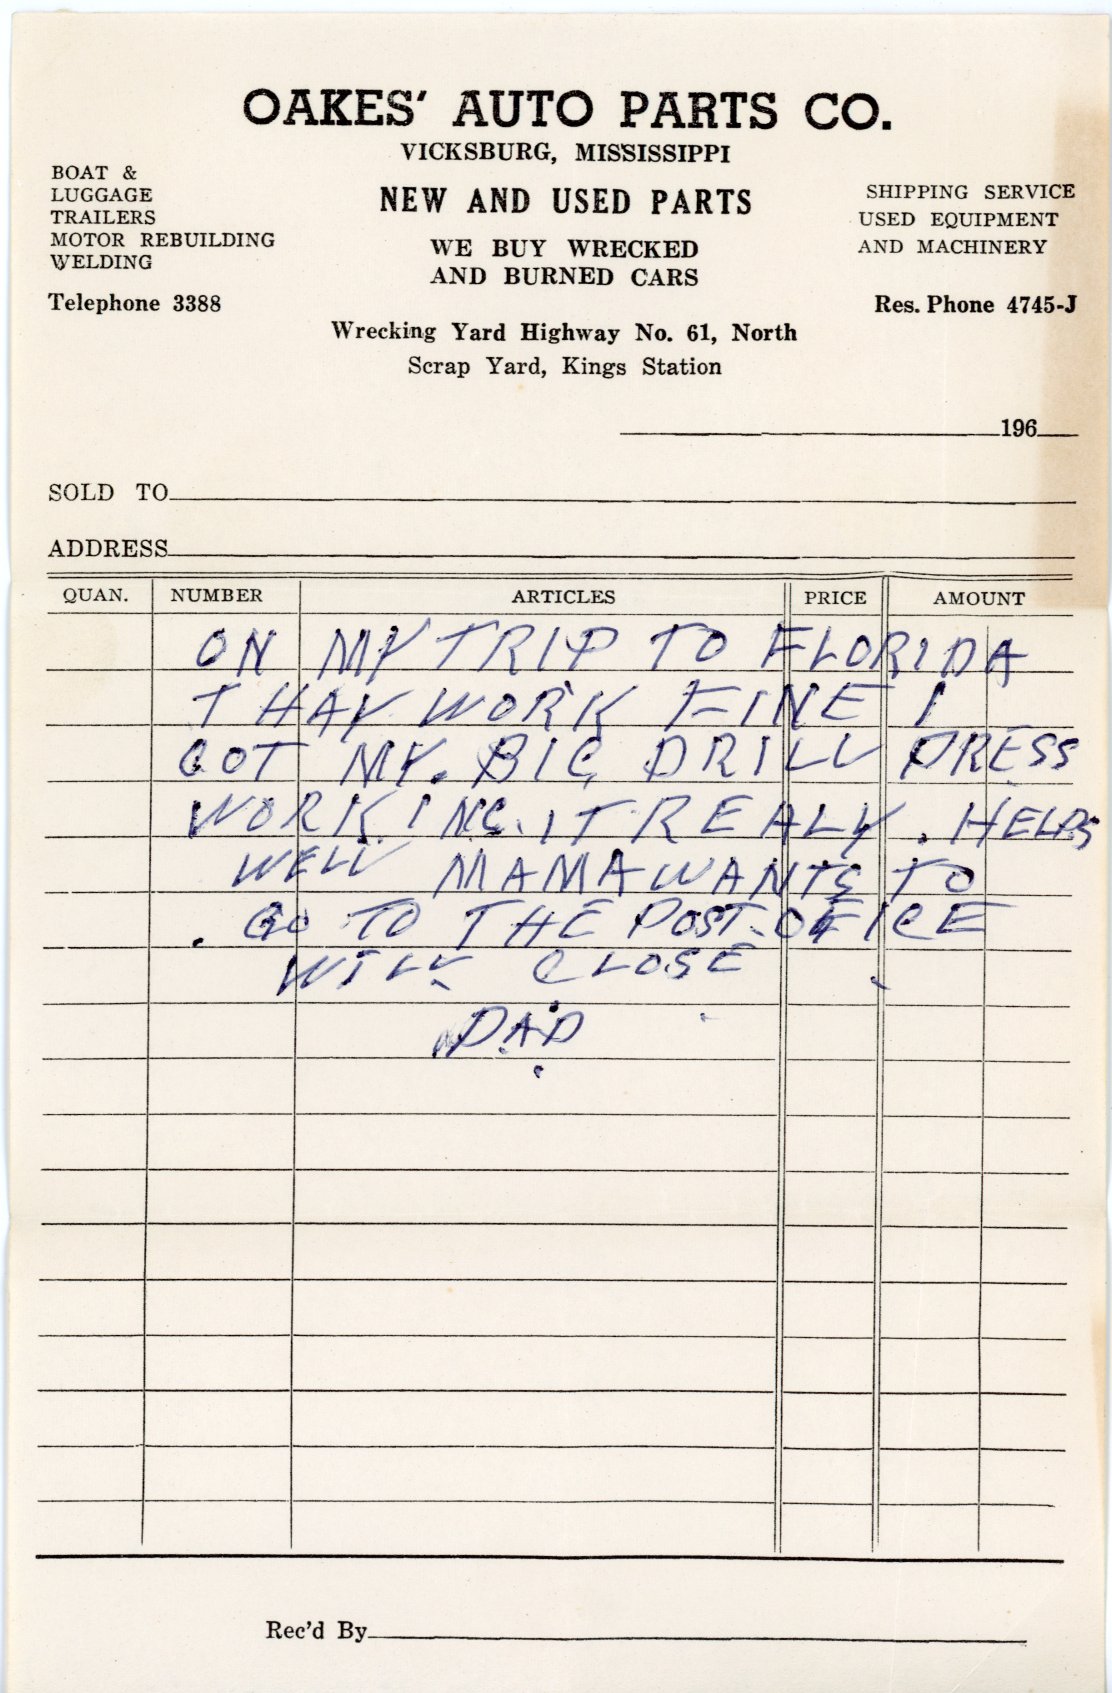 OAKES' AUTO PARTS CO.
VICKSBURG, MISSISSIPPI
NEW AND USED PARTS
WE BUY WRECKED
AND BURNED CARS
BOAT &
LUGGAGE
TRAILERS
MOTOR REBUILDING
WELDING
Telephone 3388
SHIPPING SERVICE
USED EQUIPMENT
AND MACHINERY
Res. Phone 4745-J
Wrecking Yard Highway No. 61, North
Scrap Yard, Kings Station
196
SOLD TO
ADDRESS
QUAN. NUMBER ARTICLES PRICE AMOUNT
ON MY TRIP TO FLORIDA
THAY WORK FINE I
GOT MY. BIG DRILL PRESS
WORKING. IT REALY. HELPS
WELL MAMA WANTS TO
. GO TO THE POST. OFICE
WILL CLOSE
DAD
Rec'd By